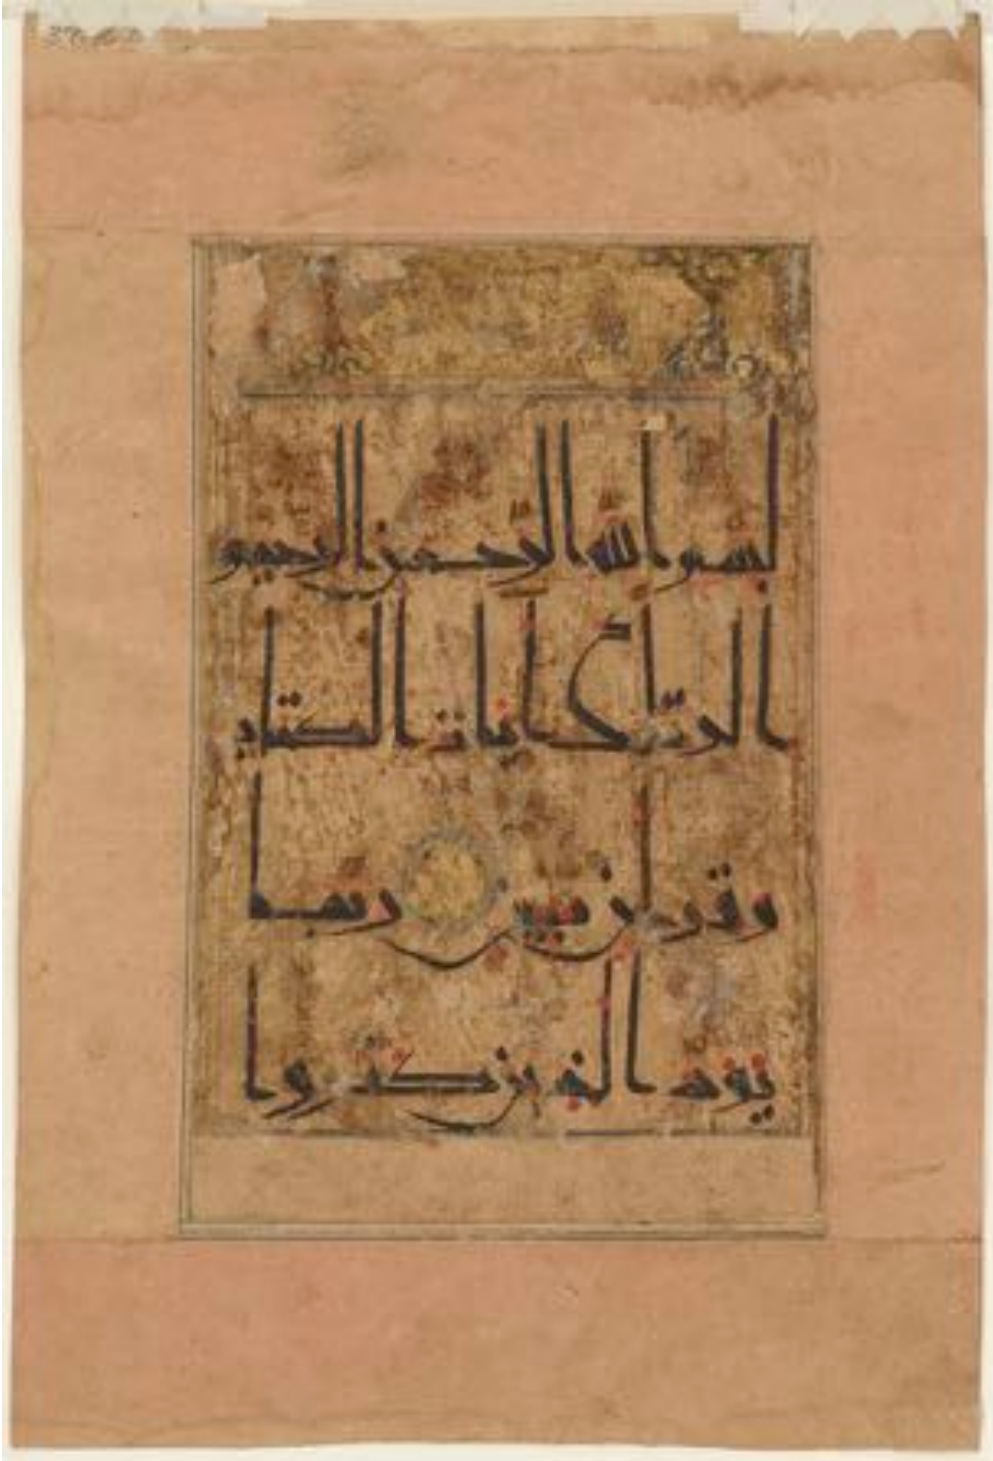 بسم الله الرحمن الرحيم
الر تلك ايات الكتاب
وقران مبين ربما
يود الذين كفروا